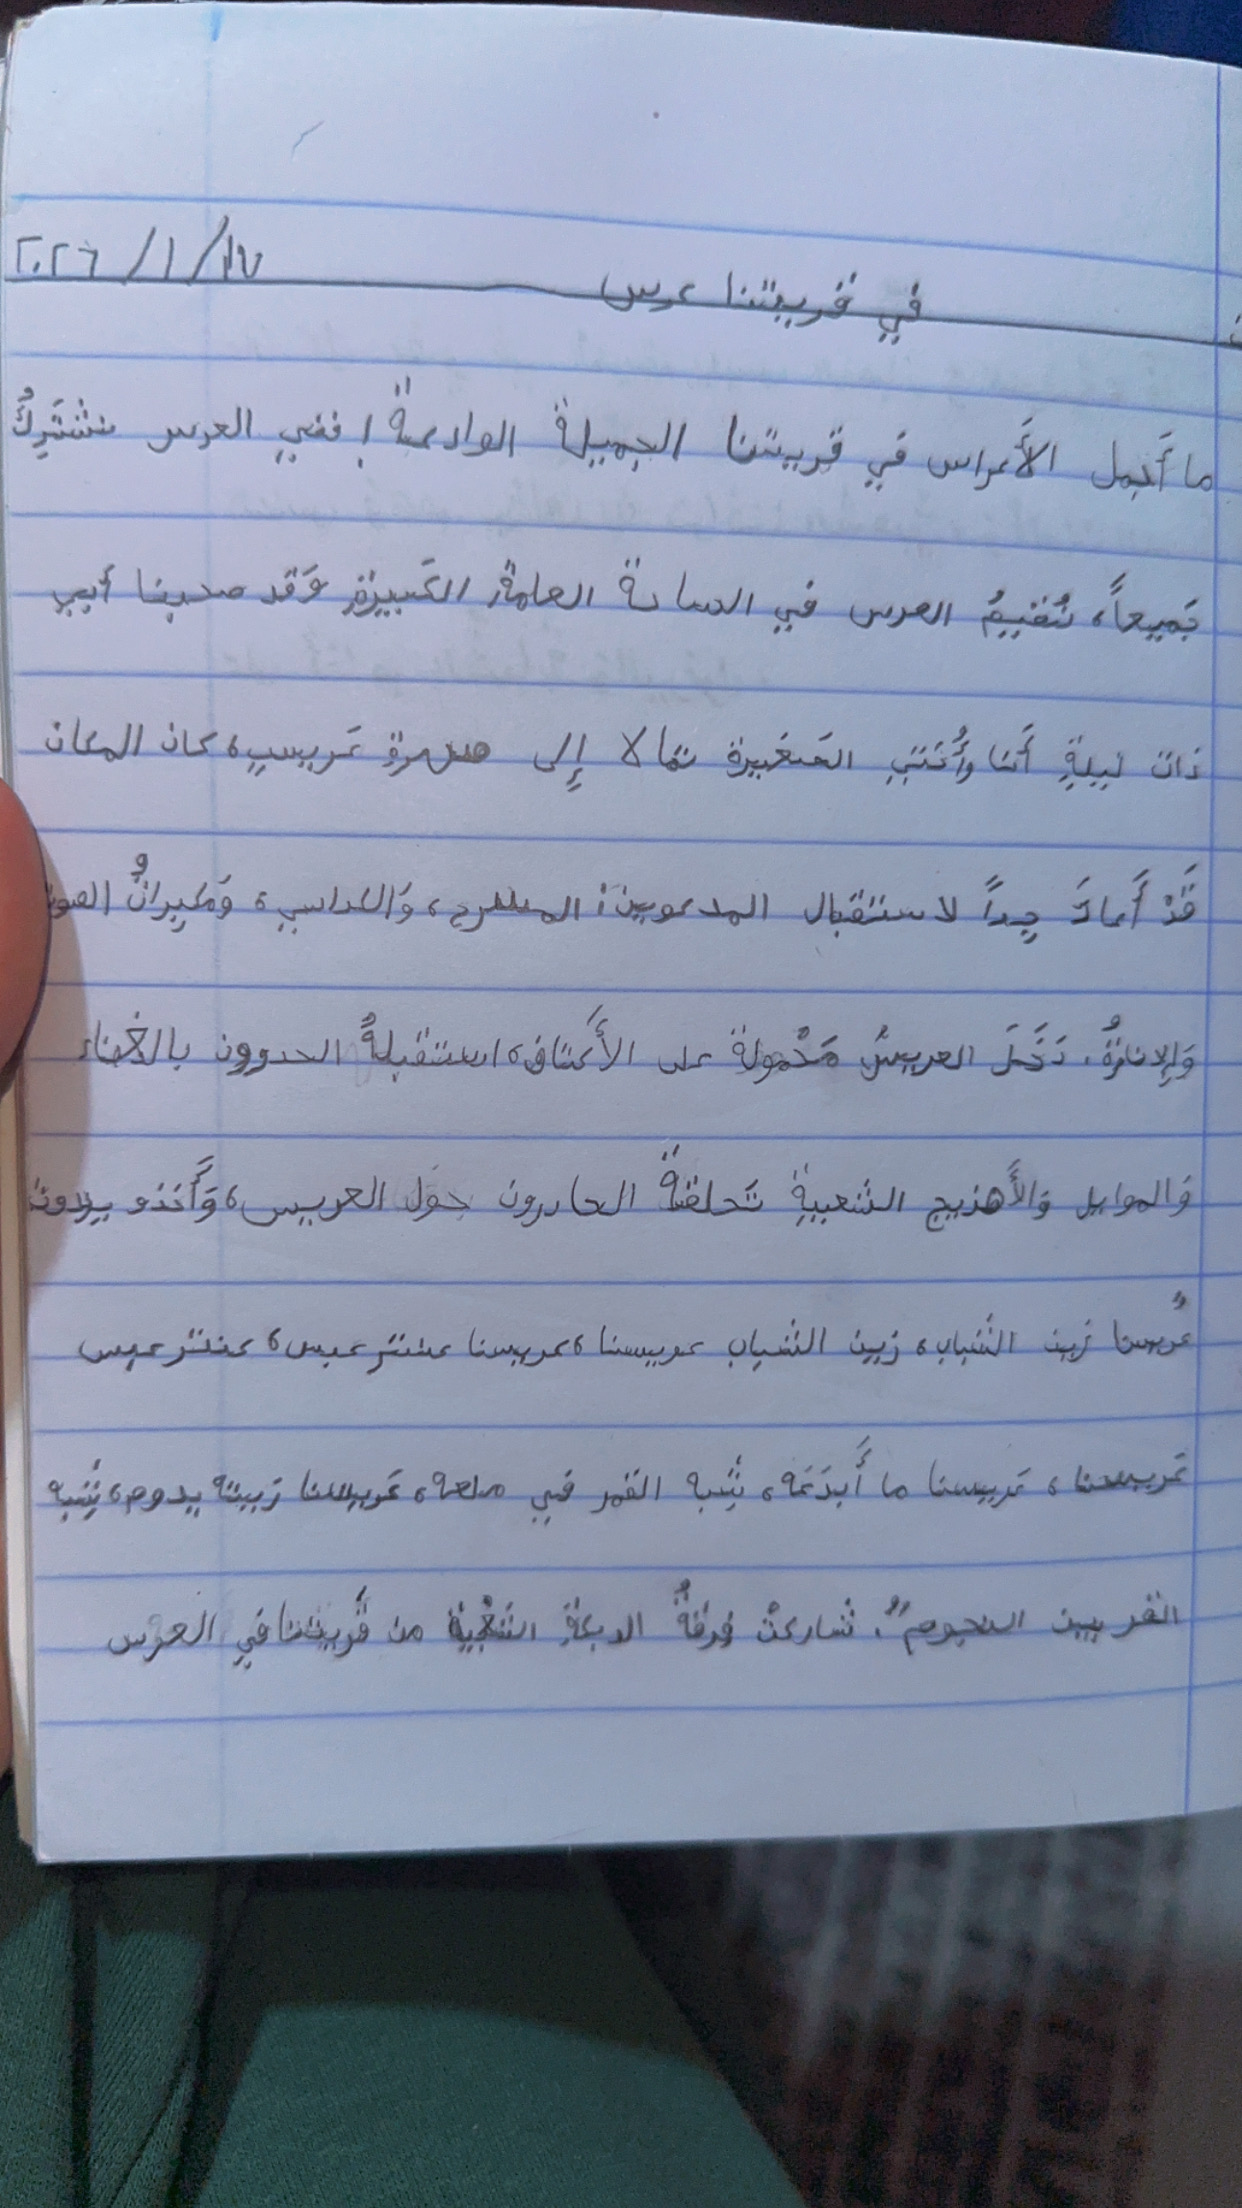 في قريتنا عرس ١٧/ ١/ ٢٠٢٦
ما أَجمل الأَعراس في قريتنا الجميلة الوادعة! ففي العرس نشتَرِكُ
جَميعاً، نُقيمُ العرس في الساحة العامة الكَبيرةِ وَقد صحبنا أبي
ذات ليلةٍ أَنا وأُختي الصَغيرة نمالا إِلى سهرة عَريسٍ، كان المكان
قَدْ أَعادَ جِداً لاستقبال المدعوين: المسرح، وَالكراسي، وَمكبِرانُ الصوت
وَالإِنارةُ. دَخَلَ العريسُ مَحْمولة على الأَكتاف، استقبلةُ الحدوون بالغناء
وَالموايل وَالأَهزيج الشعبيةِ تَحلقة الحادرون حَول العريس، وَأَخذو يرددون
عُريسنا زَين الشَباب، زين الشباب عريسنا، عريسنا عنتر عبس، عنتر عبس
عَريسنا، عَريسنا ما أَبدَعَه، يُشبه القمر في مطلعه، عَريسنا زَينته يدوم، يُشبه
القمر بين النجوم". شاركتْ فِرقةُ الدبكةِ الشَعْبية من قَريتنا في العرس